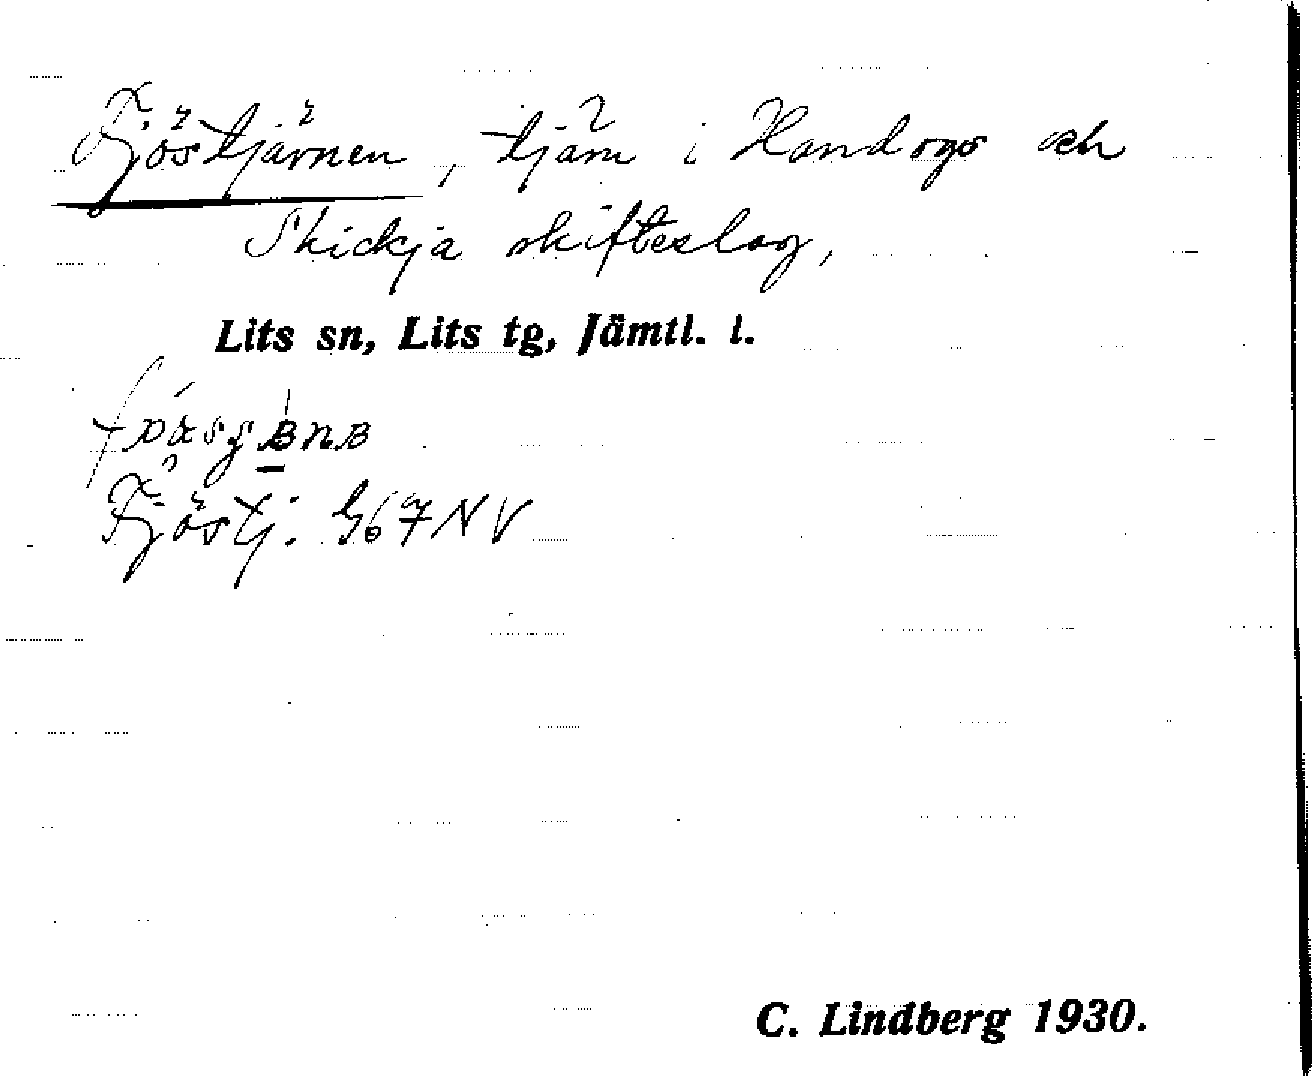 Fjöstjärnen, tjärn i Handogs och
Skickja skifteslag,
Lits sn, Lits tg, Jämtl. l.
Fjöstj. 67 NV
C. Lindberg 1930.